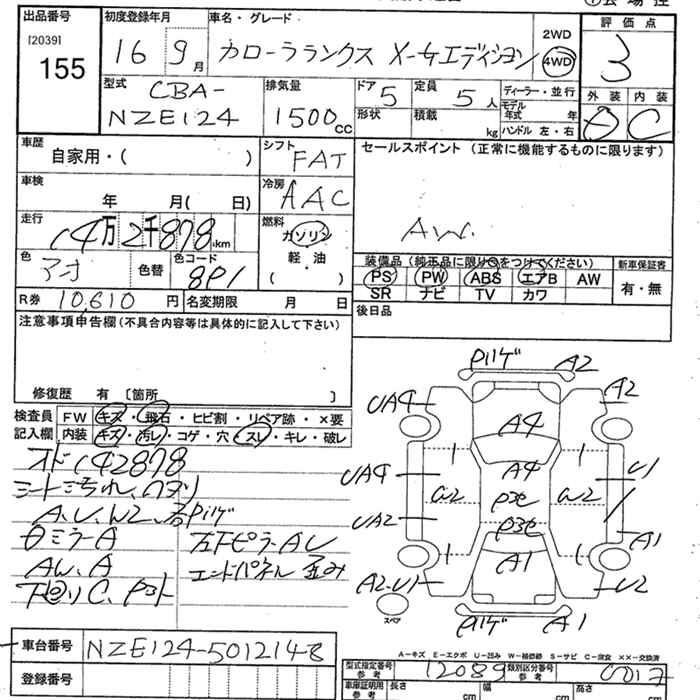 出品番号
[2039]
155
初度登録年月
16 9月
車名・グレード
カローラランクス X-Gエディション
2WD
4WD
評価点
3
型式
CBA-
NZE124
排気量
1500cc
ドア
5
形状
定員
5人
積載
kg
ディーラー・並行
モデル
年式 年
ハンドル 左・右
外装
内装
C
車歴
自家用・( )
シフト
FAT
車検
年 月( 日)
冷房
AAC
走行
14万2千878km
燃料
ガソリン
軽・油
( )
色
アオ
色替
色コード
8P1
R券 10,610円 名変期限 月 日
セールスポイント(正常に機能するものに限ります)
AW.
装備品(純正品に限り○をつけてください)
新車保証書
PS PW ABS エアB AW
SR ナビ TV カワ
有・無
後日品
注意事項申告欄(不具合内容等は具体的に記入して下さい)
修復歴 有 〔箇所 〕
検査員
記入欄
FW キズ・飛石・ヒビ割・リペア跡・×要
内装 キズ・汚レ・コゲ・穴・スレ・キレ・破レ
オド142878
A、U、W2、右P11ゲ
ミラーA
左下ピラーAU
AW、A
エンドパネル歪み
P11ゲ
A2
UA9
A2
A4
UA9
A4
U1
W2
P3セ
W2
UA2
P3セ
A1
A1
A2-U1
U2
P11ゲ
A1
スペア
A-キズ E-エクボ U-凹み W-補修跡 S-サビ C-腐食 ××-交換済
車台番号 NZE124-5012148
登録番号
型式指定番号
参考
12089
類別区分番号
参考
0017
車庫証明用
参考
長さ cm
幅 cm
高さ cm